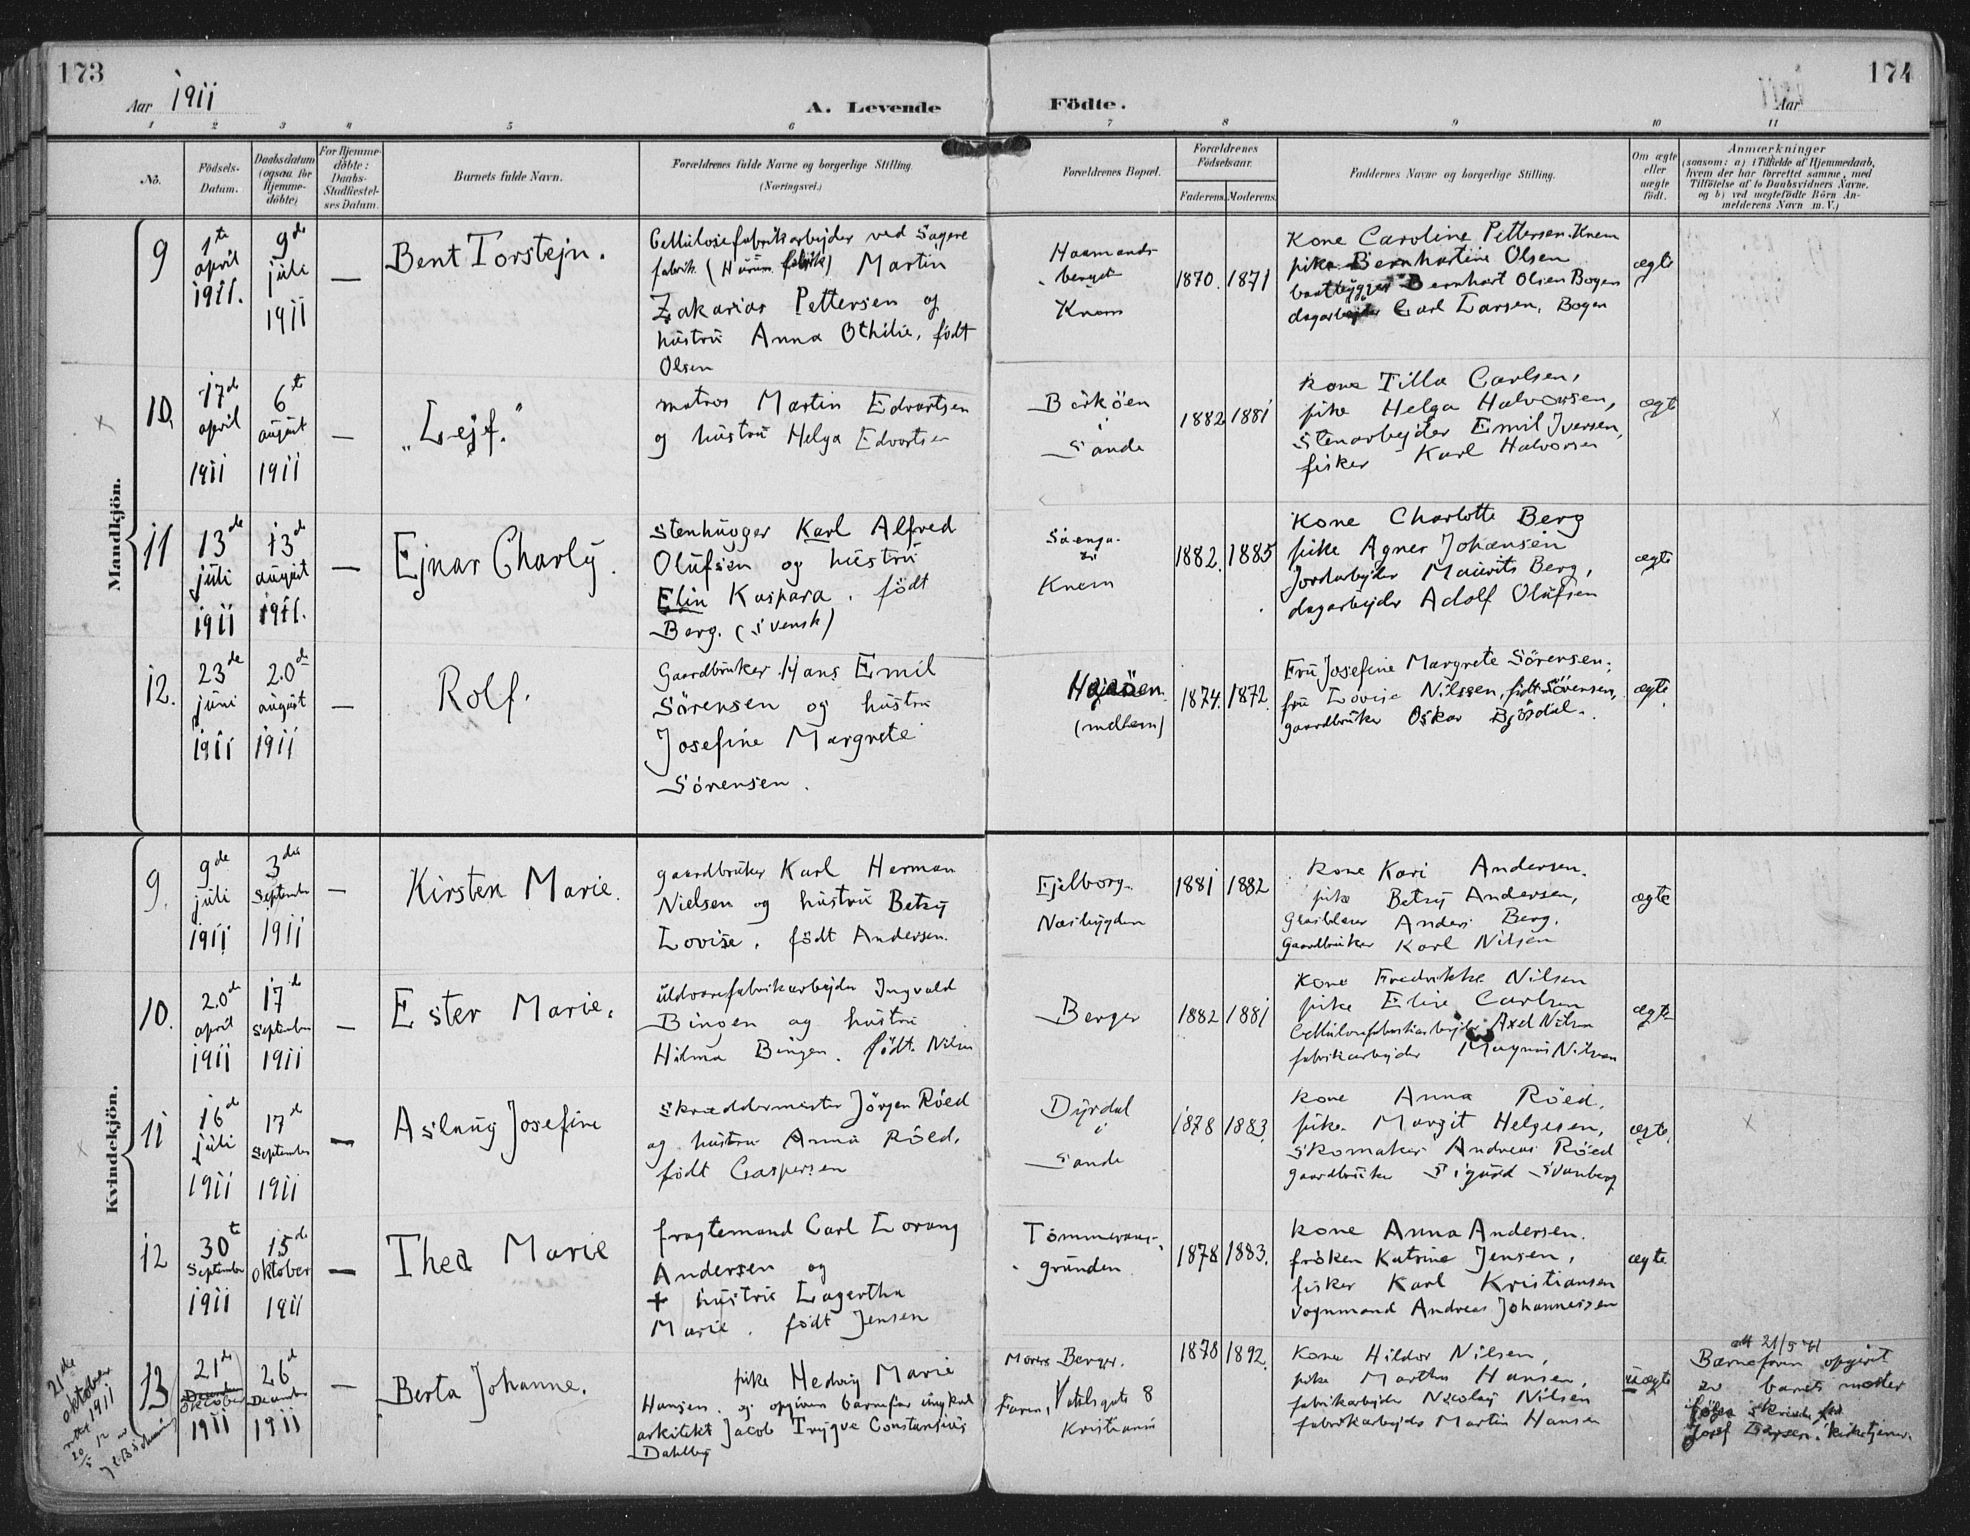 173
Aar 1911
A. Levende
Födte.
Aar 1911
174
1 2 3 4 5 6 7 8 9 10 11
No.
Födsels-
Datum.
Daabsdatum
(ogsaa for
Hjemme-
döbte)
For Hjemme-
döbte:
Daabs-
Stadfæstel-
ses Datum.
Barnets fulde Navn.
Forældrenes fulde Navne og borgerlige Stilling.
(Næringsvei.)
Forældrenes Bopæl.
Forældrenes
Födselsaar.
Faderens. Moderens.
Faddernes Navne og borgerlige Stilling.
Om ægte
eller
uægte
født.
Anmærkninger
(saasom: a) i Tilfælde af Hjemmedaab,
hvem der har forrettet samme, med
Tilföielse af to Daabsvidners Navne.
og b) ved uægtefödte Börn An-
melderens Navn m. V.)
Mandkjön.
9
1te
april
1911.
9de
juli
1911
—
Bent Torstejn.
Cellulosefabrikarbejder ved Sagene
fabrik (Hurum fabrik) Martin
Zakarias Pettersen og
hustru Anna Othilie, født
Olsen
Knem
1870. 1871
Kone Caroline Pettersen Knem
pike Bernhartine Olsen
baatbygger Bernhart Olsen Bogen
dagarbejder Carl Larsen, Bogen
ægte
10.
17de
april
1911
6te
august
1911
—
„Lejf."
matros Martin Edvartsen
og hustru Helga Edvartsen
Birköen
i
Sande
1882 1881
Kone Tilla Carlsen,
pike Helga Halvorsen,
Stenarbejder Emil Iversen,
fisker Karl Halvorsen
ægte
x
11
13de
juli
1911
13de
august
1911.
—
Ejnar Charly.
Stenhugger Karl Alfred
Olufsen og hustru
Elin Kaspara. født
Berg. (svensk)
Knem
1882. 1885
Kone Charlotte Berg
pike Agnes Johansen
Jordarbejder Maurits Berg,
dagarbejder Adolf Olufsen
ægte
12.
23de
juni
1911
20de
august
1911
—
Rolf.
Gaardbruker Hans Emil
Sörensen og hustru
Josefine Margrete
Sörensen.
Højaöen
(mellem)
1874. 1872.
Fru Josefine Margrete Sörensen.
fru Lovise Nilssen, født Sörensen,
gaardbruker Oskar Bjørdal.
ægte.
Kvindekjön.
9.
9de
juli
1911
3die
September
1911
—
Kirsten Marie.
gaardbruker Karl Herman
Nielsen og hustru Betzy
Lovise, født Andersen.
Ejelborg.
Næsbygden
1881 1882
Kone Kari Andersen.
pike Betzy Andersen,
Glasblæser Anders Berg.
Gaardbruker Karl Nilsen
ægte
10.
20de
april
1911
17de
September
1911
—
Ester Marie.
uldvarefabrikarbejder Ingvald
Bingen og hustru
Hilma Bingen. født. Nilsen
Berger
1882 1881
Kone Fredrikke Nilsen
pike Elise Carlsen
Cellulosefabrikarbejder Axel Nilsen
fabrikarbejder Magnus Nilsen
ægte
11
16de
juli
1911
17de
September
1911
—
Aslaug Josefine
Skræddermester Jörgen Röed
og hustru Anna Röed,
født Caspersen
Dyrdal
i
Sande
1878 1883.
Kone Anna Röed.
pike Margit Helgesen,
Skomaker Andreas Röed
gaardbruker Sigurd Svanberg
ægte.
x
12
30te
September
1911
15de
Oktober
1911
—
Thea Marie
fragtemand Carl Lorang
Andersen og
+ hustru Lagertha
Marie. født Jensen
Tömmeraas-
grunden
1878 1883.
Kone Anna Andersen.
fröken Katrine Jensen,
fisker Karl Kristiansen
vognmand Andreas Johannessen
ægte
21de
oktober
1911
13
21de
December
Oktober
1911
26de
December
1911
—
Berta Johanne.
pike Hedvig Marie
Hansen. og opgiven barnefar ungkarl
arkitekt Jacob Trygve Constansius
Dahlby
Morens Berger.
Farens, Vahlsgate 8
Kristiania
1878 1892.
Kone Hildur Nilsen,
pike Martha Hansen,
fabrikarbejder Nicolaj Nilsen
fabrikarbejder Martin Hansen
uægte
att 21/5 41
Barnefaren opgivet
av barnets moder
ifølge skrivelse fra
Josef Larsen. kirketjener.